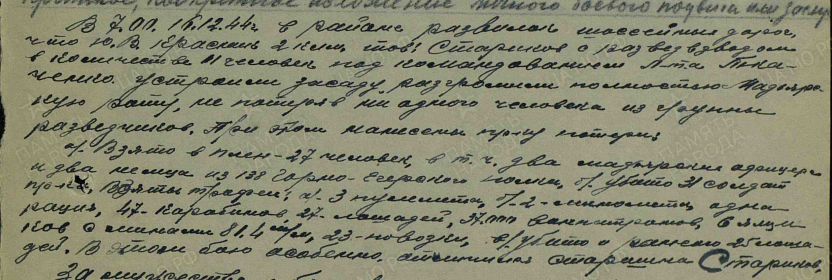 Краткое, конкретное изложение личного боевого подвига или заслуг
В 7.00. 16.12.44г. в районе развилок шоссейных дорог,
что ю.в. 2 км, тов. Стариков с разведвзводом
в количестве 11 человек под командованием Л-та
устроили засаду разгромили полностью Мадьярс-
кую роту, не потеряв ни одного человека из группы
разведчиков. При этом нанесены пр-ку потери:
а/. Взято в плен - 27 человек, в т.ч. два мадьярских офицера
и два немца из 138 Горно-Егерского полка, б/. убито 31 солдат
пр-ка, Взяты трофеи: а/- 3 пулемета, б/-2-миномета, одна
рация, 47-карабинов, 27-лошадей, 37.000 винпатронов, 6 ящи-
ков с минами 81,4 м/м, 23-повозки, в/убито и ранено 25 лоша-
дей. В этом бою особенно, отличился старшина Стариков.
За мужество